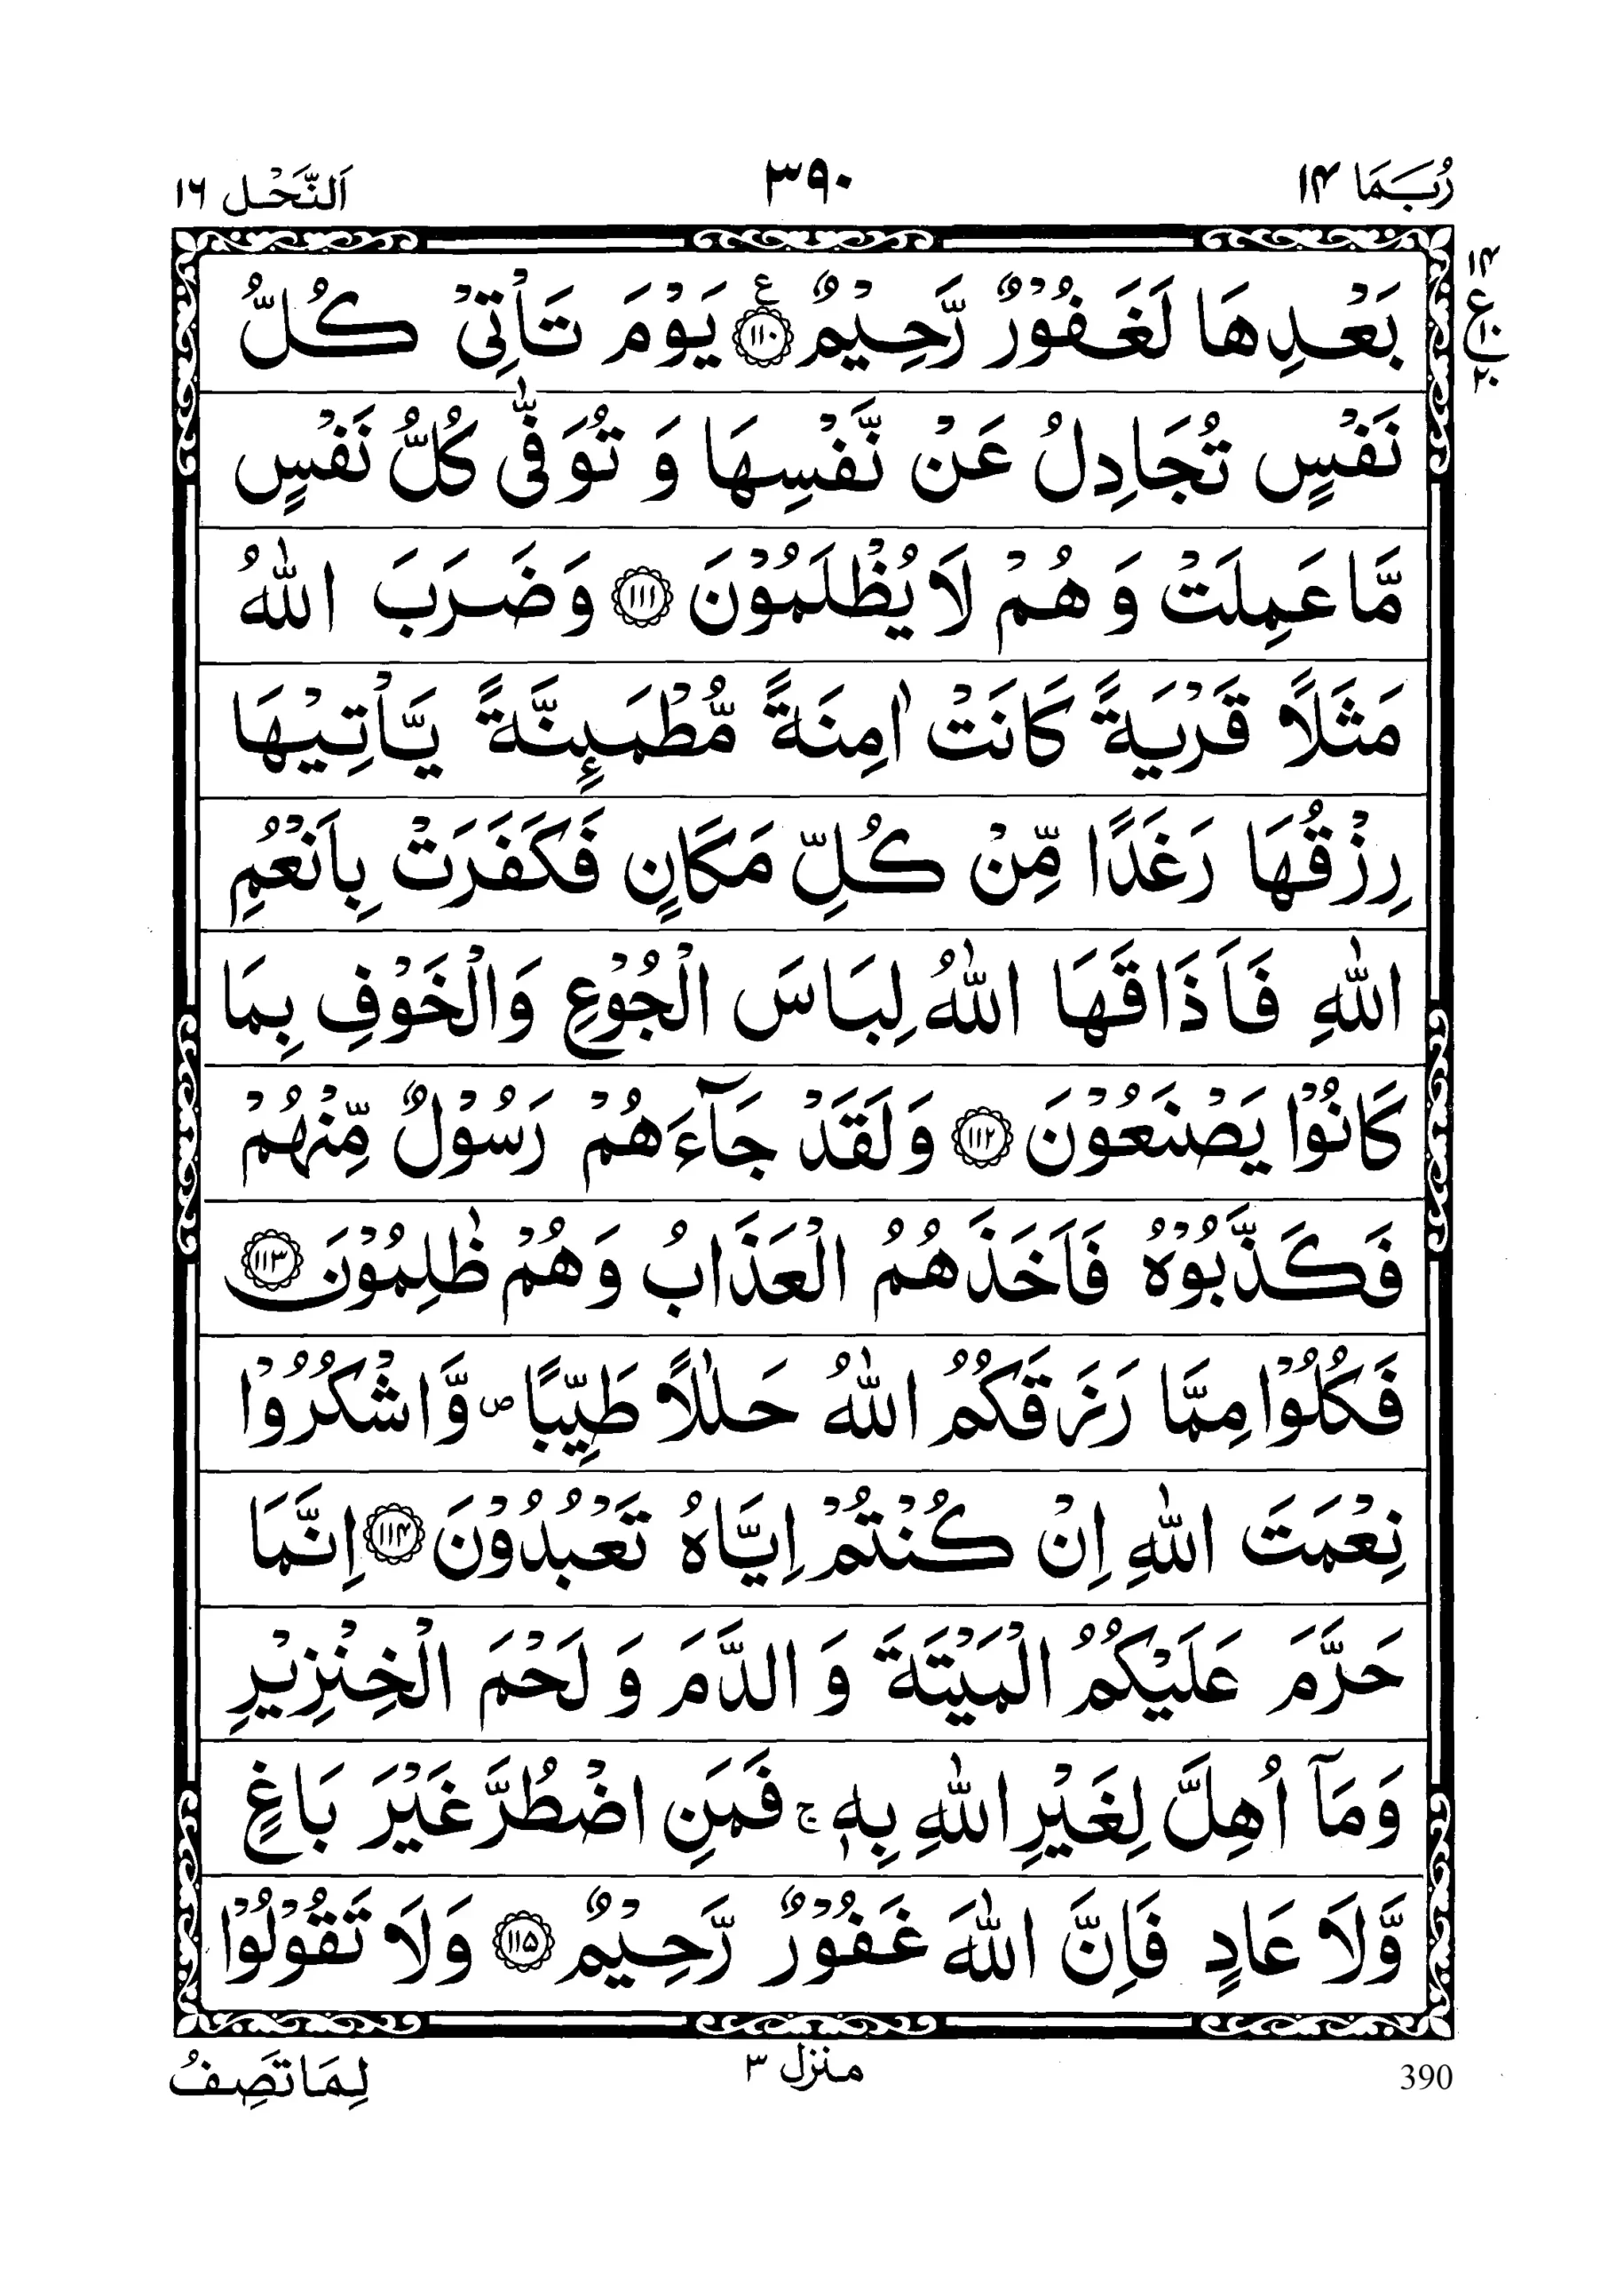 رُبَمَا ١۴
٣٩٠
اَلنَّحْل ١٦
١۴
ع
١٠
٢٠
بَعْدِهَا لَغَفُوْرٌ رَّحِيْمٌ ﴿١١٠﴾ ع يَوْمَ تَاْتِيْ كُلُّ
نَفْسٍ تُجَادِلُ عَنْ نَّفْسِهَا وَ تُوَفّٰى كُلُّ نَفْسٍ
مَّا عَمِلَتْ وَ هُمْ لَا يُظْلَمُوْنَ ﴿١١١﴾ وَضَرَبَ اللّٰهُ
مَثَلًا قَرْيَةً كَانَتْ اٰمِنَةً مُّطْمَىِٕنَّةً يَّاْتِيْهَا
رِزْقُهَا رَغَدًا مِّنْ كُلِّ مَكَانٍ فَكَفَرَتْ بِاَنْعُمِ
اللّٰهِ فَاَذَاقَهَا اللّٰهُ لِبَاسَ الْجُوْعِ وَالْخَوْفِ بِمَا
كَانُوْا يَصْنَعُوْنَ ﴿١١٢﴾ وَلَقَدْ جَآءَهُمْ رَسُوْلٌ مِّنْهُمْ
فَكَذَّبُوْهُ فَاَخَذَهُمُ الْعَذَابُ وَهُمْ ظٰلِمُوْنَ ﴿١١٣﴾
فَكُلُوْا مِمَّا رَزَقَكُمُ اللّٰهُ حَلٰلًا طَيِّبًا ص وَّاشْكُرُوْا
نِعْمَتَ اللّٰهِ اِنْ كُنْتُمْ اِيَّاهُ تَعْبُدُوْنَ ﴿١١۴﴾ اِنَّمَا
حَرَّمَ عَلَيْكُمُ الْمَيْتَةَ وَ الدَّمَ وَ لَحْمَ الْخِنْزِيْرِ
وَمَآ اُهِلَّ لِغَيْرِ اللّٰهِ بِهٖ ج فَمَنِ اضْطُرَّ غَيْرَ بَاغٍ
وَّلَا عَادٍ فَاِنَّ اللّٰهَ غَفُوْرٌ رَّحِيْمٌ ﴿١١۵﴾ وَلَا تَقُوْلُوْا
390
منزل ٣
لِمَا تَصِفُ